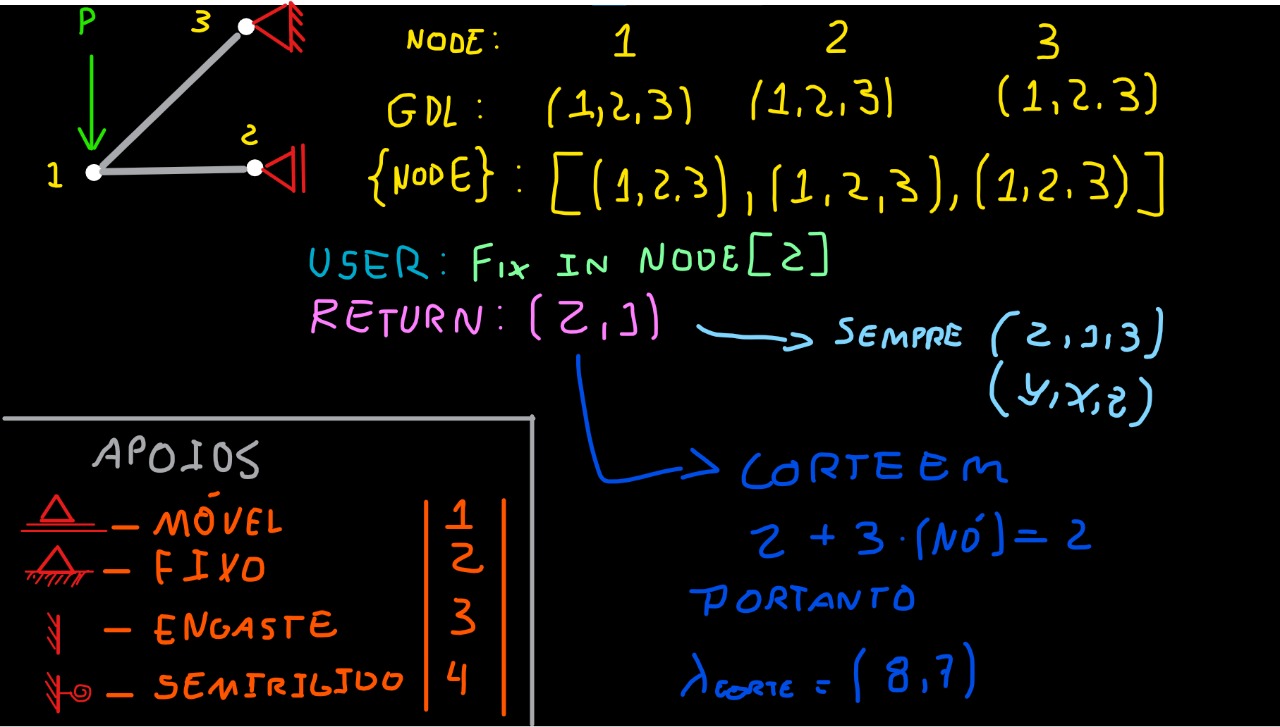 P
3
2
1
NODE: 1 2 3
GDL: (1,2,3) (1,2,3) (1,2.3)
{NODE}: [(1,2.3),(1,2,3),(1,2,3)]
USER: FIX IN NODE[2]
RETURN: (2,1)
SEMPRE (2,1,3)
(y,x,z)
CORTE EM
2 + 3·(NÓ) = 2
PORTANTO
λCORTE = (8,7)
APOIOS
— MÓVEL 1
— FIXO 2
— ENGASTE 3
— SEMIRIGIDO 4